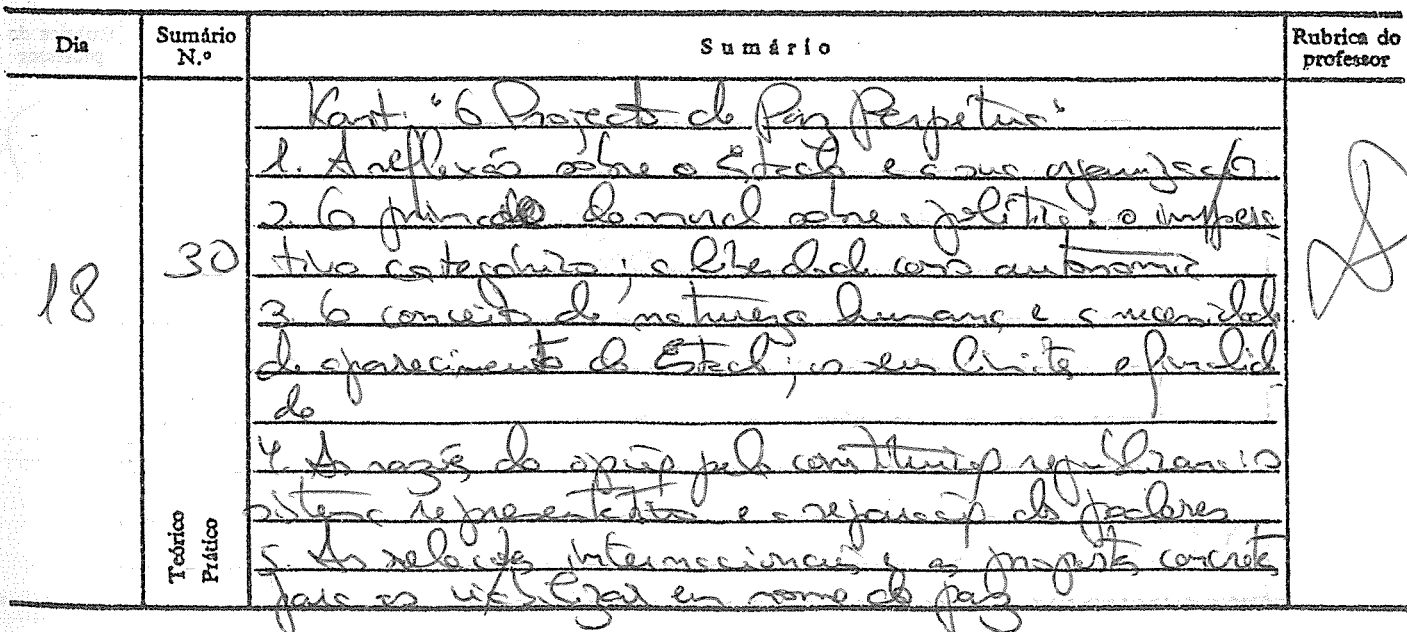 Dia Sumário N.º Sumário Rubrica do professor
Kant: "O Projecto de Paz Perpétua"
1. A reflexão sobre o Estado e a sua organização
2. O primado da moral sobre a política: o impera
18 30 tivo categórico; a liberdade como autonomia
3. O conceito de natureza humana e a necessidade
de aparecimento do Estado; os seus limites e finalida
de
4. As razões da opção pela constituição republicana: o
sistema representativo e a separação dos poderes
Teórico Prático
5. As relações internacionais e as propostas concretas
para as viabilizar em nome da paz